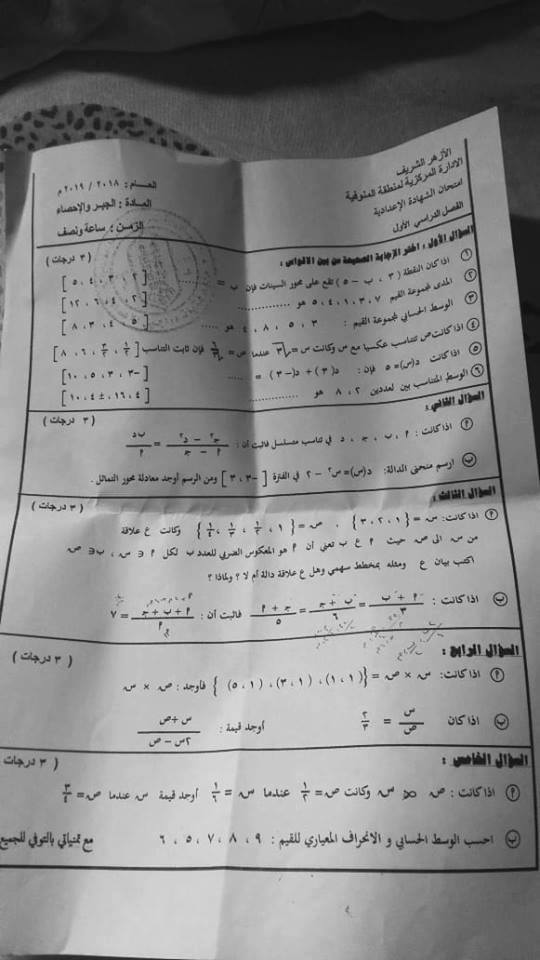 الأزهر الشريف
الادارة المركزية لمنطقة المنوفية
امتحان الشهادة الإعدادية
الفصل الدراسي الأول
العام : ٢٠١٨ / ٢٠١٩ م
المادة : الجبر والإحصاء
الزمن : ساعة ونصف
السؤال الأول : اختر الإجابة الصحيحة من بين الاقواس : ( ٣ درجات )
١ اذا كان النقطة ( ٣ ، ب − ٥ ) تقع على محور السينات فإن ب = ........ [ ٢ ، ٣ ، ٤ ، ٥ ]
٢ المدى لمجموعة القيم ٧ ، ٣ ، ١ ، ٤ ، ٥ هو ............ [ ٢ ، ٤ ، ٦ ، ١٢ ]
٣ الوسط الحسابي لمجموعة القيم : ٣ ، ٥ ، ٨ ، ٤ هو ........ [ ٥ ، ٤ ، ٣ ، ٨ ]
٤ اذا كانت ص تتناسب عكسيا مع س وكانت س = √٣ عندما ص = فإن ثابت التناسب
٥ اذا كانت د(س) = ٥ فإن : د(٣) + د(−٣) = ...... [ −٣ ، ٣ ، ٥ ، ١٠ ]
٦ الوسط المتناسب بين لعددين ٢ ، ٨ هو ........ [ ٤ ، ١٦ ، ± ٤ ، ١٠ ]
السؤال الثاني : ( ٣ درجات )
أ اذا كانت : أ ، ب ، ج ، د في تناسب متسلسل فاثبت أن : (ج٢ − د٢) / (أ − ج) = ب د / أ
ب ارسم منحنى الدالة : د(س) = س٢ − ٢ في الفترة [ −٣ ، ٣ ] ومن الرسم أوجد معادلة محور التماثل .
السؤال الثالث : ( ٣ درجات )
أ اذا كانت : س = { ١ ، ٢ ، ٣ } ، ص = { ١ ، ١/٢ ، ١/٣ ، ١/٤ } وكانت ع علاقة
من س الى ص حيث أ ع ب تعني أن أ هو المعكوس الضربي للعدد ب لكل أ ∈ س ، ب ∈ ص
اكتب بيان ع ومثله بمخطط سهمي وهل ع علاقة دالة أم لا ؟ ولماذا ؟
ب اذا كانت : (أ + ب) / ٣ = (ب + ج) / ٦ = (ج + أ) / ٥ فاثبت أن : (أ + ب + ج) / أ = ٧
السؤال الرابع : ( ٣ درجات )
أ اذا كانت : س × ص = { (١ ، ١) ، (١ ، ٣) ، (١ ، ٥) } فاوجد : ص × س
ب اذا كان س / ص = ٢ / ٣ أوجد قيمة : (س + ص) / (٢س − ص)
السؤال الخامس : ( ٣ درجات
أ اذا كانت : ص ∝ س وكانت ص = ١/٢ عندما س = ١/٦ أوجد قيمة س عندما ص = ٣/٤
ب احسب الوسط الحسابي و الانحراف المعياري للقيم : ٩ ، ٨ ، ٧ ، ٥ ، ٦ مع تمنياتي بالتوفي للجميع